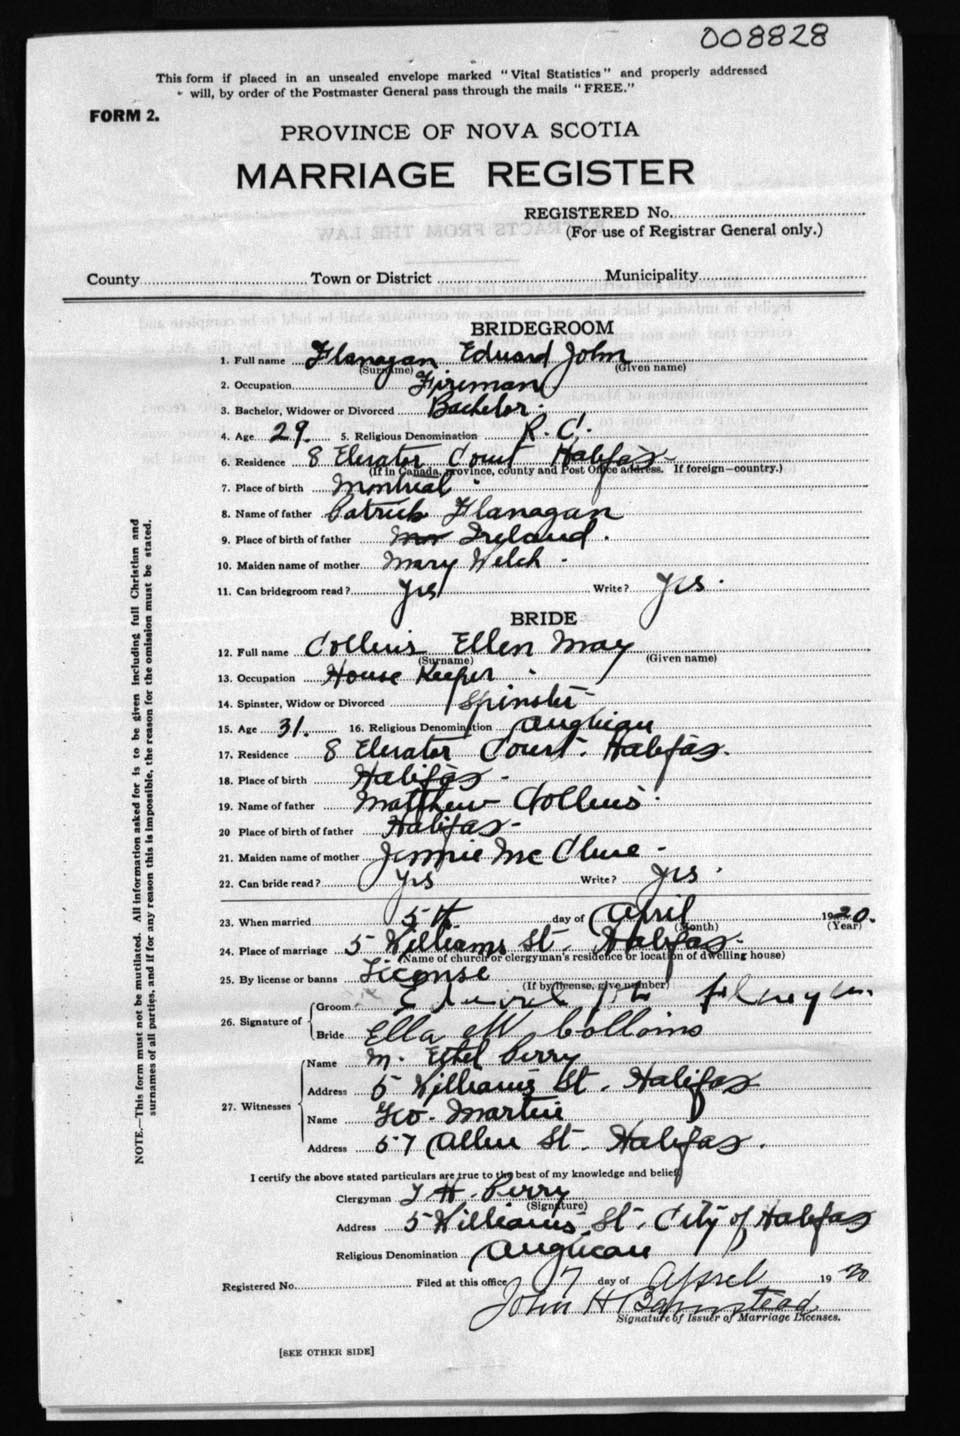 008828
This form if placed in an unsealed envelope marked "Vital Statistics" and properly addressed
will, by order of the Postmaster General pass through the mails "FREE."
FORM 2.
PROVINCE OF NOVA SCOTIA
MARRIAGE REGISTER
REGISTERED No.
(For use of Registrar General only.)
County Town or District Municipality
BRIDEGROOM
1. Full name Flanagan Edward John
(Surname) (Given name)
2. Occupation Fireman
3. Bachelor, Widower or Divorced Bachelor.
4. Age 29. 5. Religious Denomination R. C.
6. Residence 8 Elevator Court Halifax
(If in Canada, province, county and Post Office address. If foreign—country.)
7. Place of birth Montreal
8. Name of father Patrick Flanagan
9. Place of birth of father Ireland.
10. Maiden name of mother Mary Welch
11. Can bridegroom read? Yes Write? Yes
BRIDE
12. Full name Collins Ellen May
(Surname) (Given name)
13. Occupation House Keeper
14. Spinster, Widow or Divorced Spinster
15. Age 31. 16. Religious Denomination Anglican
17. Residence 8 Elevator Court. Halifax.
18. Place of birth Halifax
19. Name of father Matthew Collins
20 Place of birth of father Halifax
21. Maiden name of mother Jennie McClure
22. Can bride read? Yes Write? Yes
23. When married 5th day of April 1920.
(Month) (Year)
24. Place of marriage 5 Williams St. Halifax
(Name of church or clergyman's residence or location of dwelling house)
25. By license or banns License
(If by license, give number)
26. Signature of Groom
Bride Ella M Colloins
27. Witnesses Name M. Ethel Perry
Address 5 Williams St. Halifax
Name Geo. Martin
Address 57 Allen St. Halifax.
I certify the above stated particulars are true to the best of my knowledge and belief
Clergyman T H. Perry
(Signature)
Address 5 Williams St. City of Halifax
Religious Denomination Anglican
Registered No. Filed at this office 7 day of April 1920
John H Barnstead
Signature of Issuer of Marriage Licenses.
[SEE OTHER SIDE]
NOTE.—This form must not be mutilated. All information asked for is to be given including full Christian and
surnames of all parties, and if for any reason this is impossible, the reason for the omission must be stated.